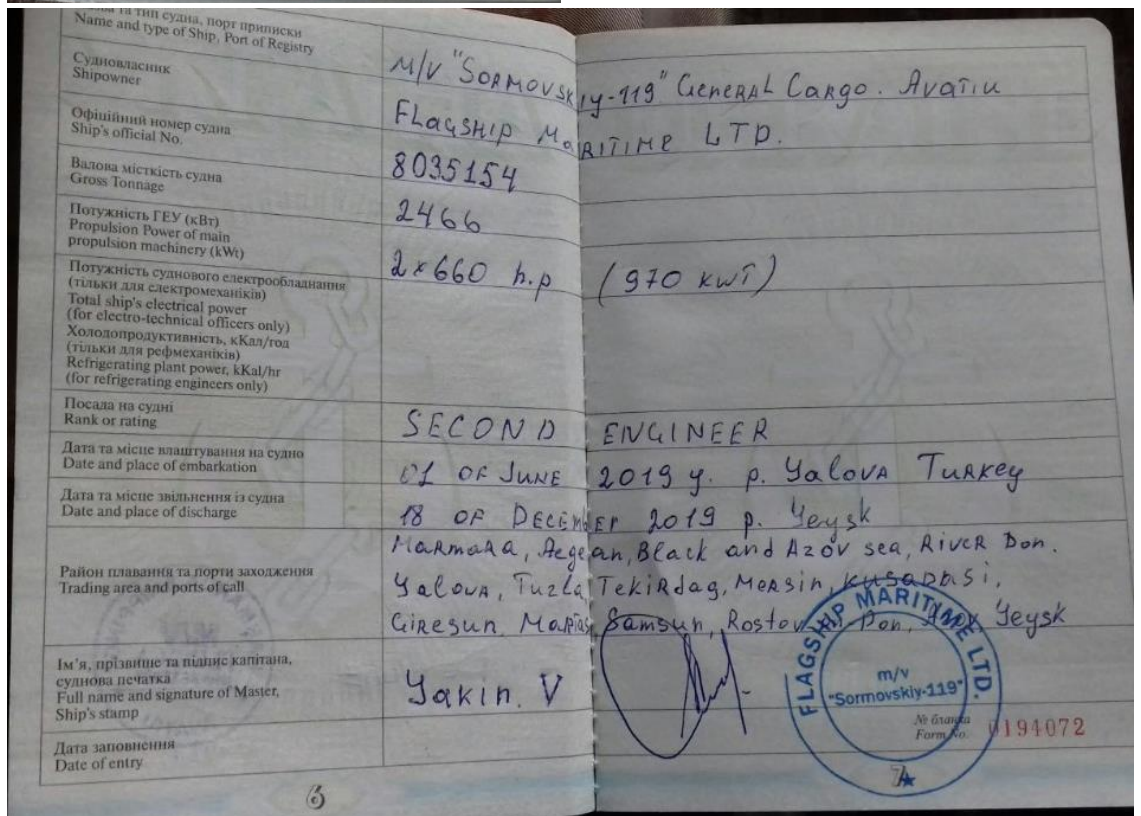 та тип судна, порт приписки
Name and type of Ship, Port of Registry
M/V "SORMOVSKIY-119" GENERAL CARGO. AVATIU
Судновласник
Shipowner
FLAGSHIP MARITIME LTD.
Офіційний номер судна
Ship's official No.
8035154
Валова місткість судна
Gross Tonnage
2466
Потужність ГЕУ (кВт)
Propulsion Power of main
propulsion machinery (kWt)
2×660 h.p (970 kwt)
Потужність суднового електрообладнання
(тільки для електромеханіків)
Total ship's electrical power
(for electro-technical officers only)
Холодопродуктивність, кКал/год
(тільки для рефмеханіків)
Refrigerating plant power, kKal/hr
(for refrigerating engineers only)
Посада на судні
Rank or rating
SECOND ENGINEER
Дата та місце влаштування на судно
Date and place of embarkation
01 OF JUNE 2019 y. p. Yalova TURKEY
Дата та місце звільнення із судна
Date and place of discharge
18 OF DECEMBER 2019 p. Yeysk
Район плавання та порти заходження
Trading area and ports of call
Marmara, Aegean, Black and Azov sea, River Don.
Yalova, Tuzla, Tekirdag, Mersin, Kusadasi,
Giresun, Samsun, Rostov Don, Azov Yeysk
Ім'я, прізвище та підпис капітана,
суднова печатка
Full name and signature of Master,
Ship's stamp
Yakin. V
FLAGSHIP MARITIME LTD.
m/v
"Sormovskiy-119"
№ бланка
Form No. 0194072
Дата заповнення
Date of entry
6
7